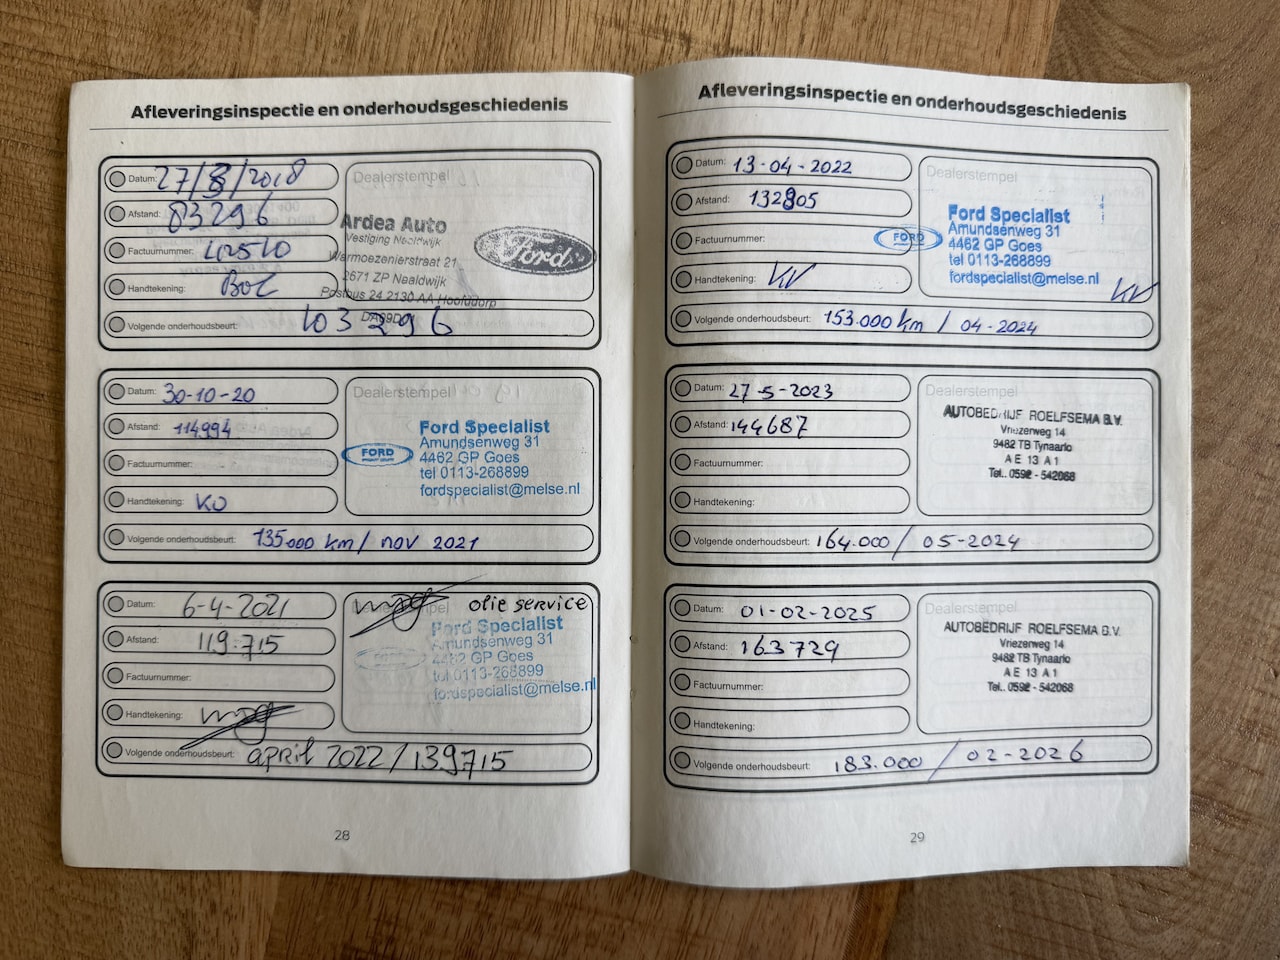 Afleveringsinspectie en onderhoudsgeschiedenis
Datum: 27/8/2018
Afstand: 83296
Factuurnummer:
Handtekening:
Volgende onderhoudsbeurt: 103296
Dealerstempel
Ardea Auto
Vestiging Naaldwijk
Warmoezenierstraat 21
2671 ZP Naaldwijk
Postbus 24 2130 AA Hoofddorp
Ford
Datum: 30-10-20
Afstand: 114994
Factuurnummer:
Handtekening: KO
Volgende onderhoudsbeurt: 135000 km / nov 2021
Dealerstempel
FORD
Ford Specialist
Amundsenweg 31
4462 GP Goes
tel 0113-268899
fordspecialist@melse.nl
Datum: 6-4-2021
Afstand: 119.715
Factuurnummer:
Handtekening:
Volgende onderhoudsbeurt: april 2022 / 139715
olie service
Ford Specialist
Amundsenweg 31
4462 GP Goes
tel 0113-268899
fordspecialist@melse.nl
28
Afleveringsinspectie en onderhoudsgeschiedenis
Datum: 13-04-2022
Afstand: 132805
Factuurnummer:
Handtekening:
Volgende onderhoudsbeurt: 153.000 km / 04-2024
Dealerstempel
FORD
Ford Specialist
Amundsenweg 31
4462 GP Goes
tel 0113-268899
fordspecialist@melse.nl
Datum: 27-5-2023
Afstand: 144687
Factuurnummer:
Handtekening:
Volgende onderhoudsbeurt: 164.000 / 05-2024
Dealerstempel
AUTOBEDRIJF ROELFSEMA B.V.
Vriezerweg 14
9482 TB Tynaarlo
A E 13 A 1
Tel.. 0592 - 542068
Datum: 01-02-2025
Afstand: 163729
Factuurnummer:
Handtekening:
Volgende onderhoudsbeurt: 183.000 / 02-2026
Dealerstempel
AUTOBEDRIJF ROELFSEMA B.V.
Vriezerweg 14
9482 TB Tynaarlo
A E 13 A 1
Tel.. 0592 - 542068
29